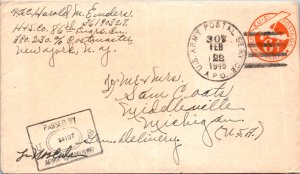 Pvt. Harold M. Enders
H+S Co. 86th Engrs. Bn.
A.P.O. 230 % Postmaster
New York, N. Y.
U.S. ARMY POSTAL SERVICE
302
FEB
22
1945
A.P.O.
6¢
To Mr + Mrs.
Sam Coats
Middleville
Michigan
(U.S.A.)
Gen. Delivery
PASSED BY
ARMY EXAMINER